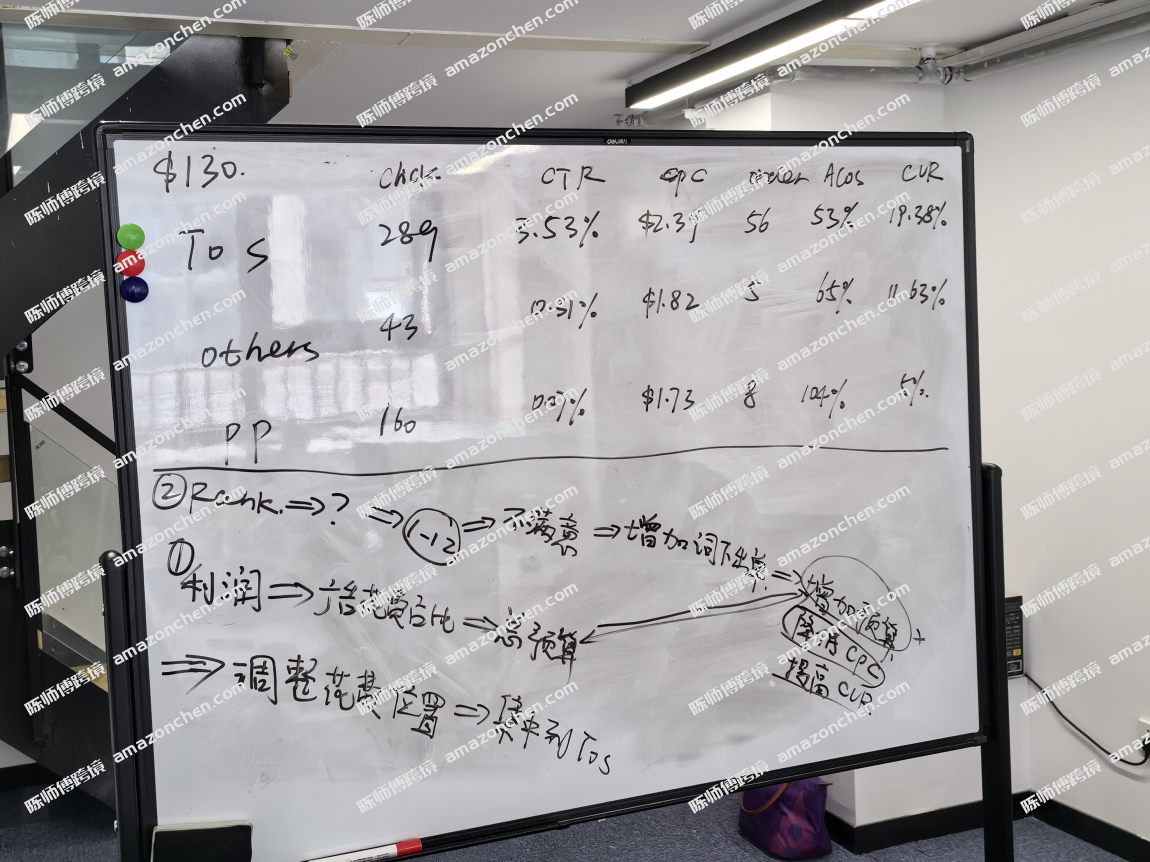 $130. Click. CTR CPC order ACos CVR
Tos 289 3.53% $2.35 56 53% 19.38%
others 43 0.31% $1.82 5 65% 11.63%
PP 160 $1.73 8 104% 5%.
② Rank. ⇒ ? ⇒ 1-12 ⇒ 不满意 ⇒ 增加词下出单 ⇒ 增加预算 +
降低CPC
提高CVR.
① 利润 ⇒ 广告花费占比 ⇒ 总预算
⇒ 调整花费位置 ⇒ 集中到Tos
deli
陈师博跨境 amazonchen.com